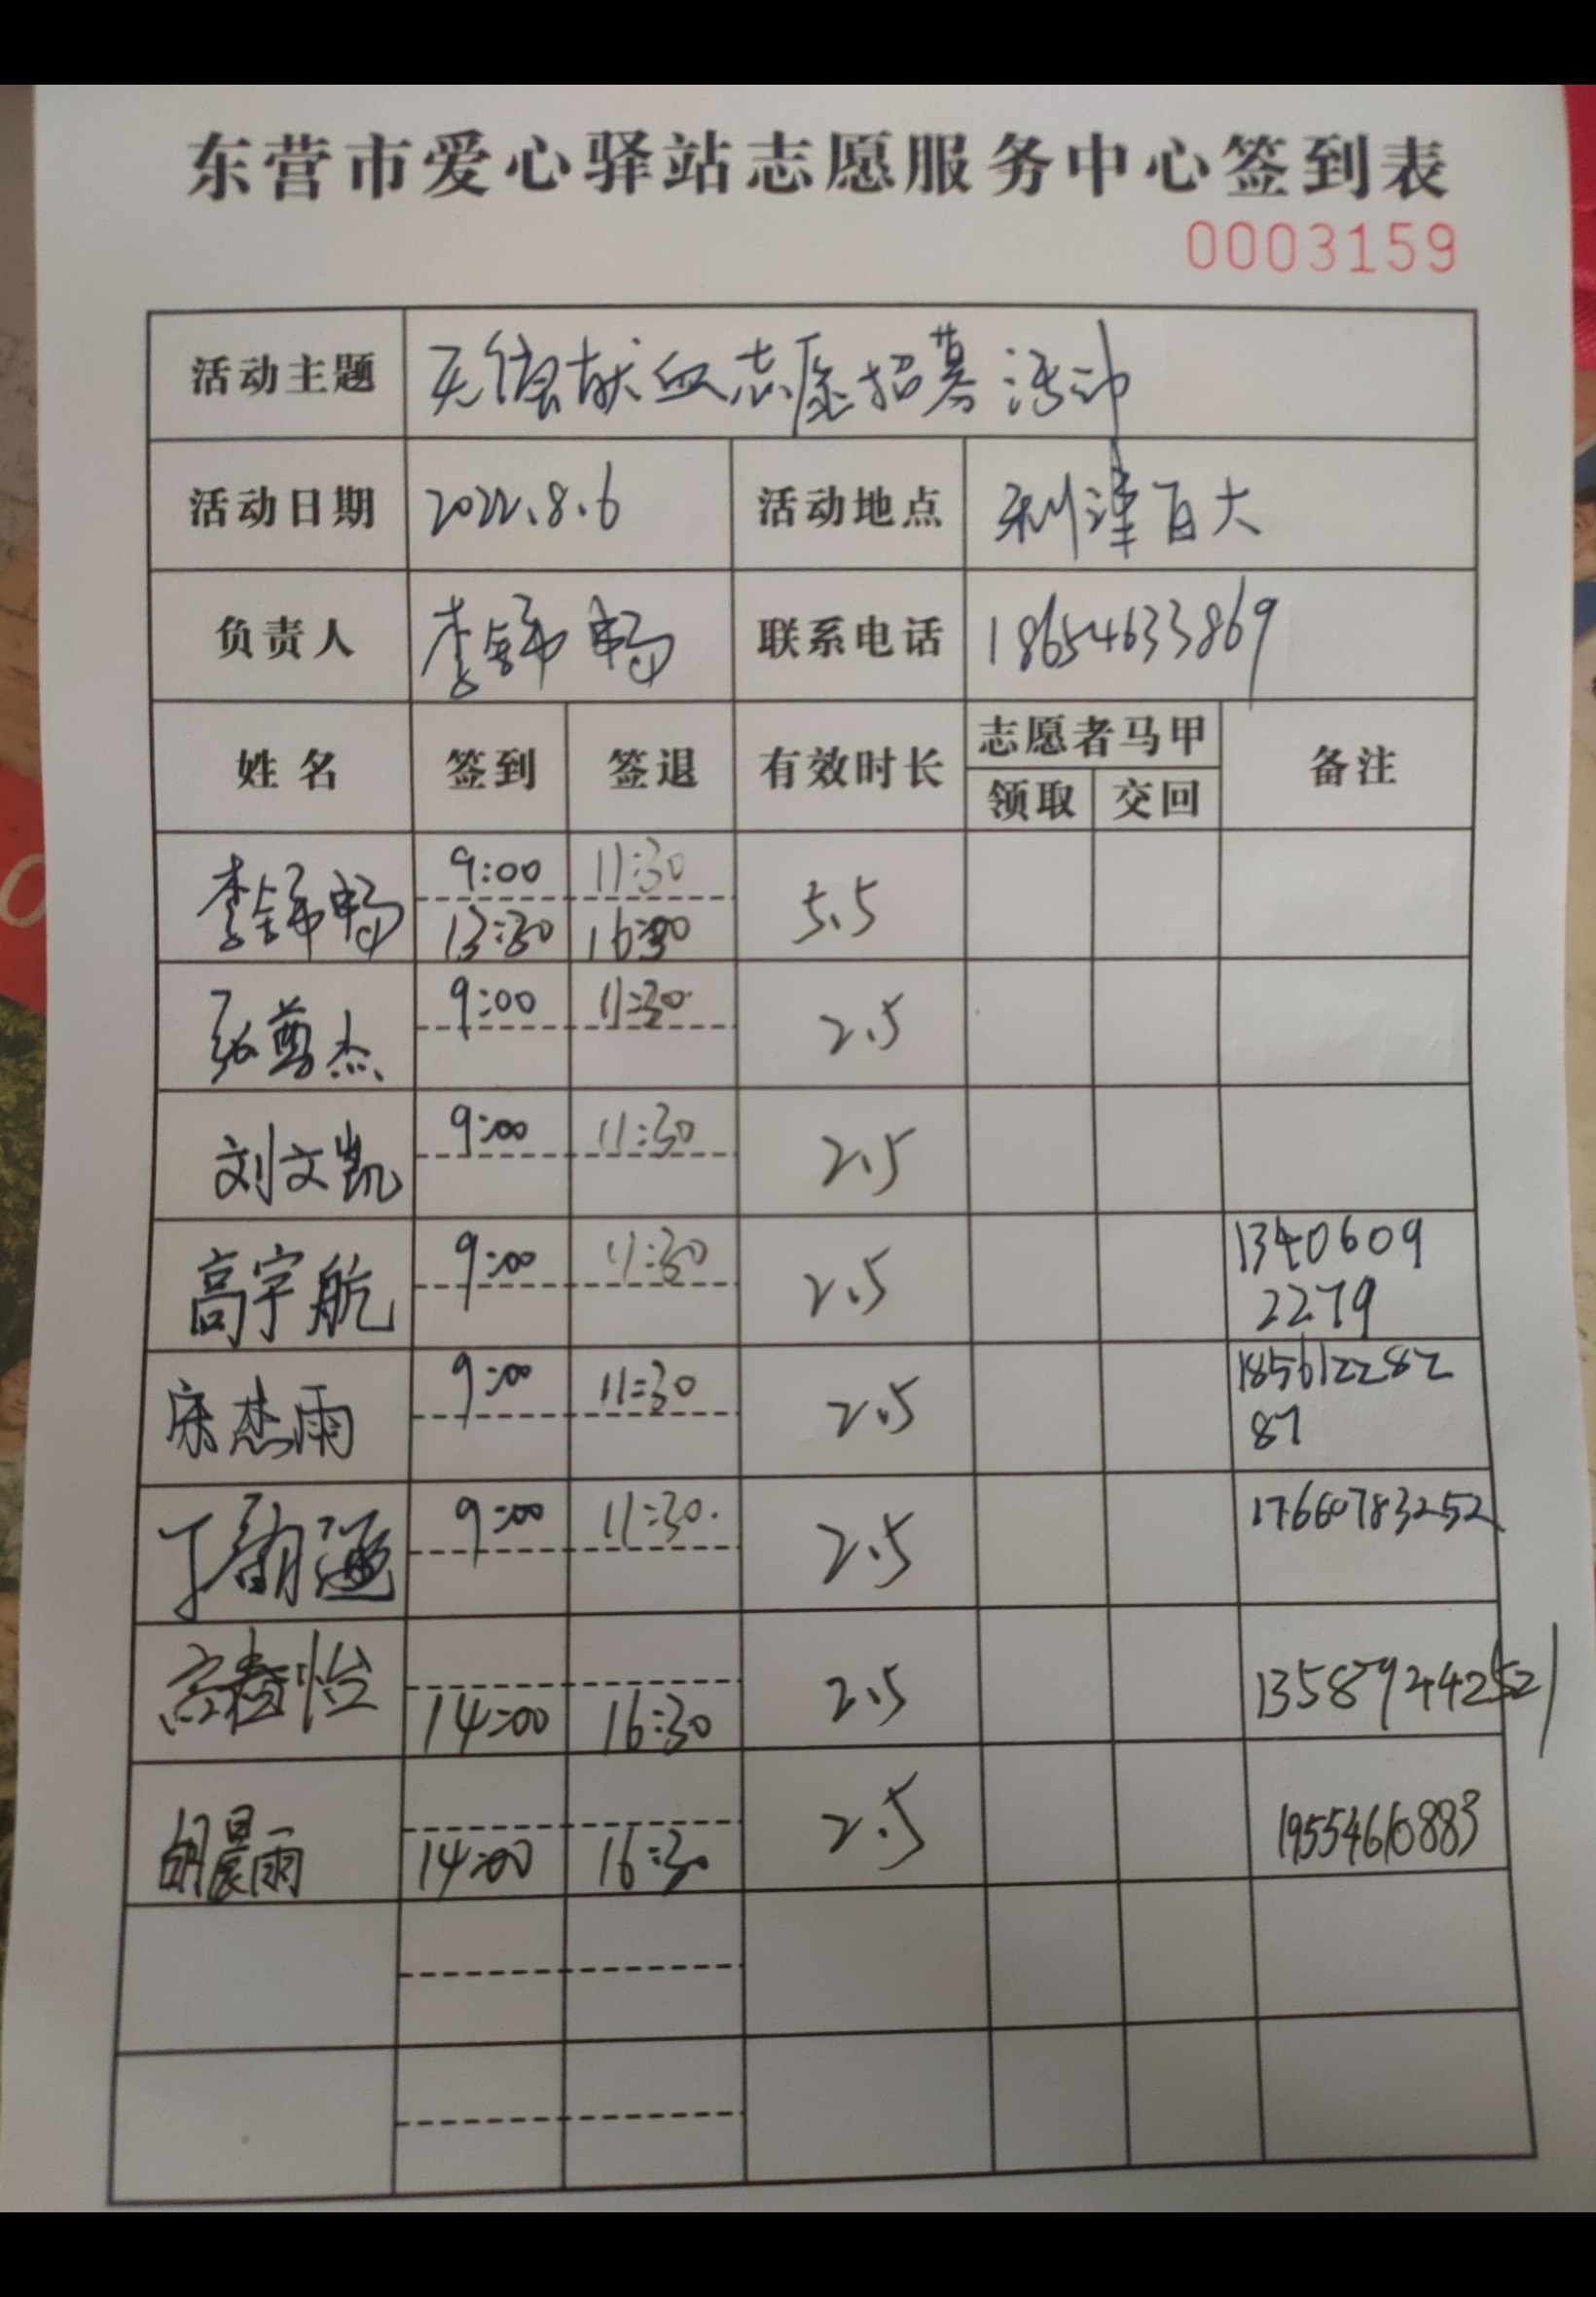 东营市爱心驿站志愿服务中心签到表
0003159
活动主题 无偿献血志愿招募活动
活动日期 2022.8.6 活动地点 利津百大
负责人 李锦畅 联系电话 18654633869
姓名 签到 签退 有效时长 志愿者马甲 备注
领取 交回
李锦畅 9:00 11:30 5.5
13:30 16:30
张尊杰 9:00 11:30 2.5
刘文凯 9:00 11:30 2.5
高宇航 9:00 11:30 2.5 1340609
2279
宋杰雨 9:00 11:30 2.5 185612282
87
丁 9:00 11:30 2.5 17660783252
高春怡 14:00 16:30 2.5
胡晨雨 14:00 16:30 2.5 19554610883